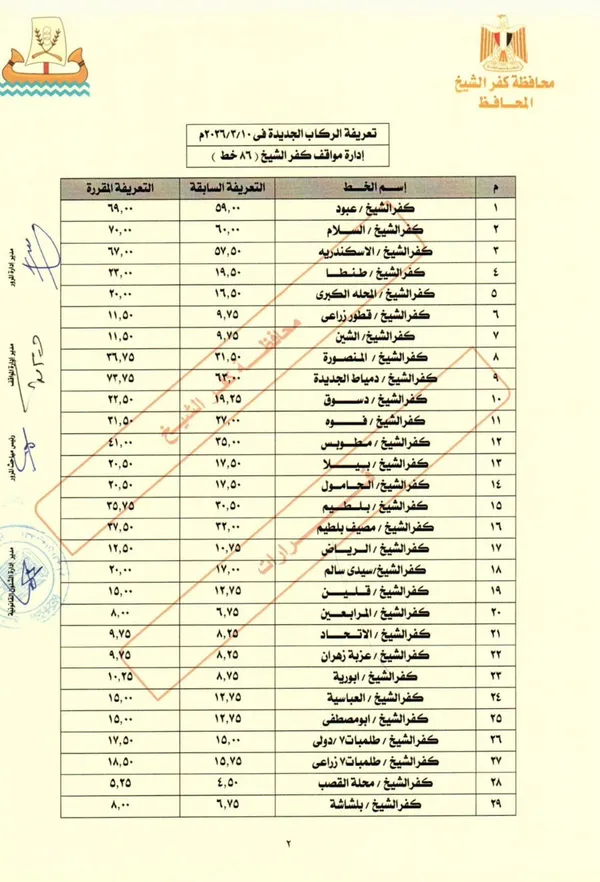 محافظة كفر الشيخ
المحافظ
تعريفة الركاب الجديدة فى ٢٠٢٦/٣/١٠م
إدارة مواقف كفر الشيخ ( ٨٦ خط )
م إسم الخط التعريفة السابقة التعريفة المقررة
١ كفرالشيخ / عبود ٥٩,٠٠ ٦٩,٠٠
٢ كفرالشيخ / السلام ٦٠,٠٠ ٧٠,٠٠
٣ كفرالشيخ / الاسكندريه ٥٧,٥٠ ٦٧,٠٠
٤ كفرالشيخ / طنطا ١٩,٥٠ ٢٣,٠٠
٥ كفرالشيخ / المحله الكبرى ١٦,٥٠ ٢٠,٠٠
٦ كفرالشيخ / قطور زراعى ٩,٧٥ ١١,٥٠
٧ كفرالشيخ / الشين ٩,٧٥ ١١,٥٠
٨ كفرالشيخ / المنصورة ٣١,٥٠ ٣٦,٧٥
٩ كفرالشيخ / دمياط الجديدة ٦٣,٠٠ ٧٣,٧٥
١٠ كفرالشيخ / دسوق ١٩,٢٥ ٢٢,٥٠
١١ كفرالشيخ / فوه ٢٧,٠٠ ٣١,٥٠
١٢ كفرالشيخ / مطوبس ٣٥,٠٠ ٤١,٠٠
١٣ كفرالشيخ / بيلا ١٧,٥٠ ٢٠,٥٠
١٤ كفرالشيخ / الحامول ١٧,٥٠ ٢٠,٥٠
١٥ كفرالشيخ / بلطيم ٣٠,٥٠ ٣٥,٧٥
١٦ كفرالشيخ / مصيف بلطيم ٣٢,٠٠ ٣٧,٥٠
١٧ كفرالشيخ / الرياض ١٠,٧٥ ١٢,٥٠
١٨ كفرالشيخ/سيدى سالم ١٧,٠٠ ٢٠,٠٠
١٩ كفرالشيخ / قلين ١٢,٧٥ ١٥,٠٠
٢٠ كفرالشيخ / المرابعين ٦,٧٥ ٨,٠٠
٢١ كفرالشيخ / الاتحاد ٨,٢٥ ٩,٧٥
٢٢ كفرالشيخ / عزبة زهران ٨,٢٥ ٩,٧٥
٢٣ كفرالشيخ / ابورية ٨,٧٥ ١٠,٢٥
٢٤ كفرالشيخ / العباسية ١٢,٧٥ ١٥,٠٠
٢٥ كفرالشيخ / ابومصطفى ١٢,٧٥ ١٥,٠٠
٢٦ كفرالشيخ / طلمبات٧ /دولى ١٥,٠٠ ١٧,٥٠
٢٧ كفرالشيخ / طلمبات٧ زراعى ١٥,٧٥ ١٨,٥٠
٢٨ كفرالشيخ / محلة القصب ٤,٥٠ ٥,٢٥
٢٩ كفرالشيخ / بلشاشة ٦,٧٥ ٨,٠٠
محافظة كفر الشيخ
قرارات
مدير إدارة المرور
مدير إدارة المواقف
رئيس مباحث المرور
مدير إدارة الشئون القانونية
٢